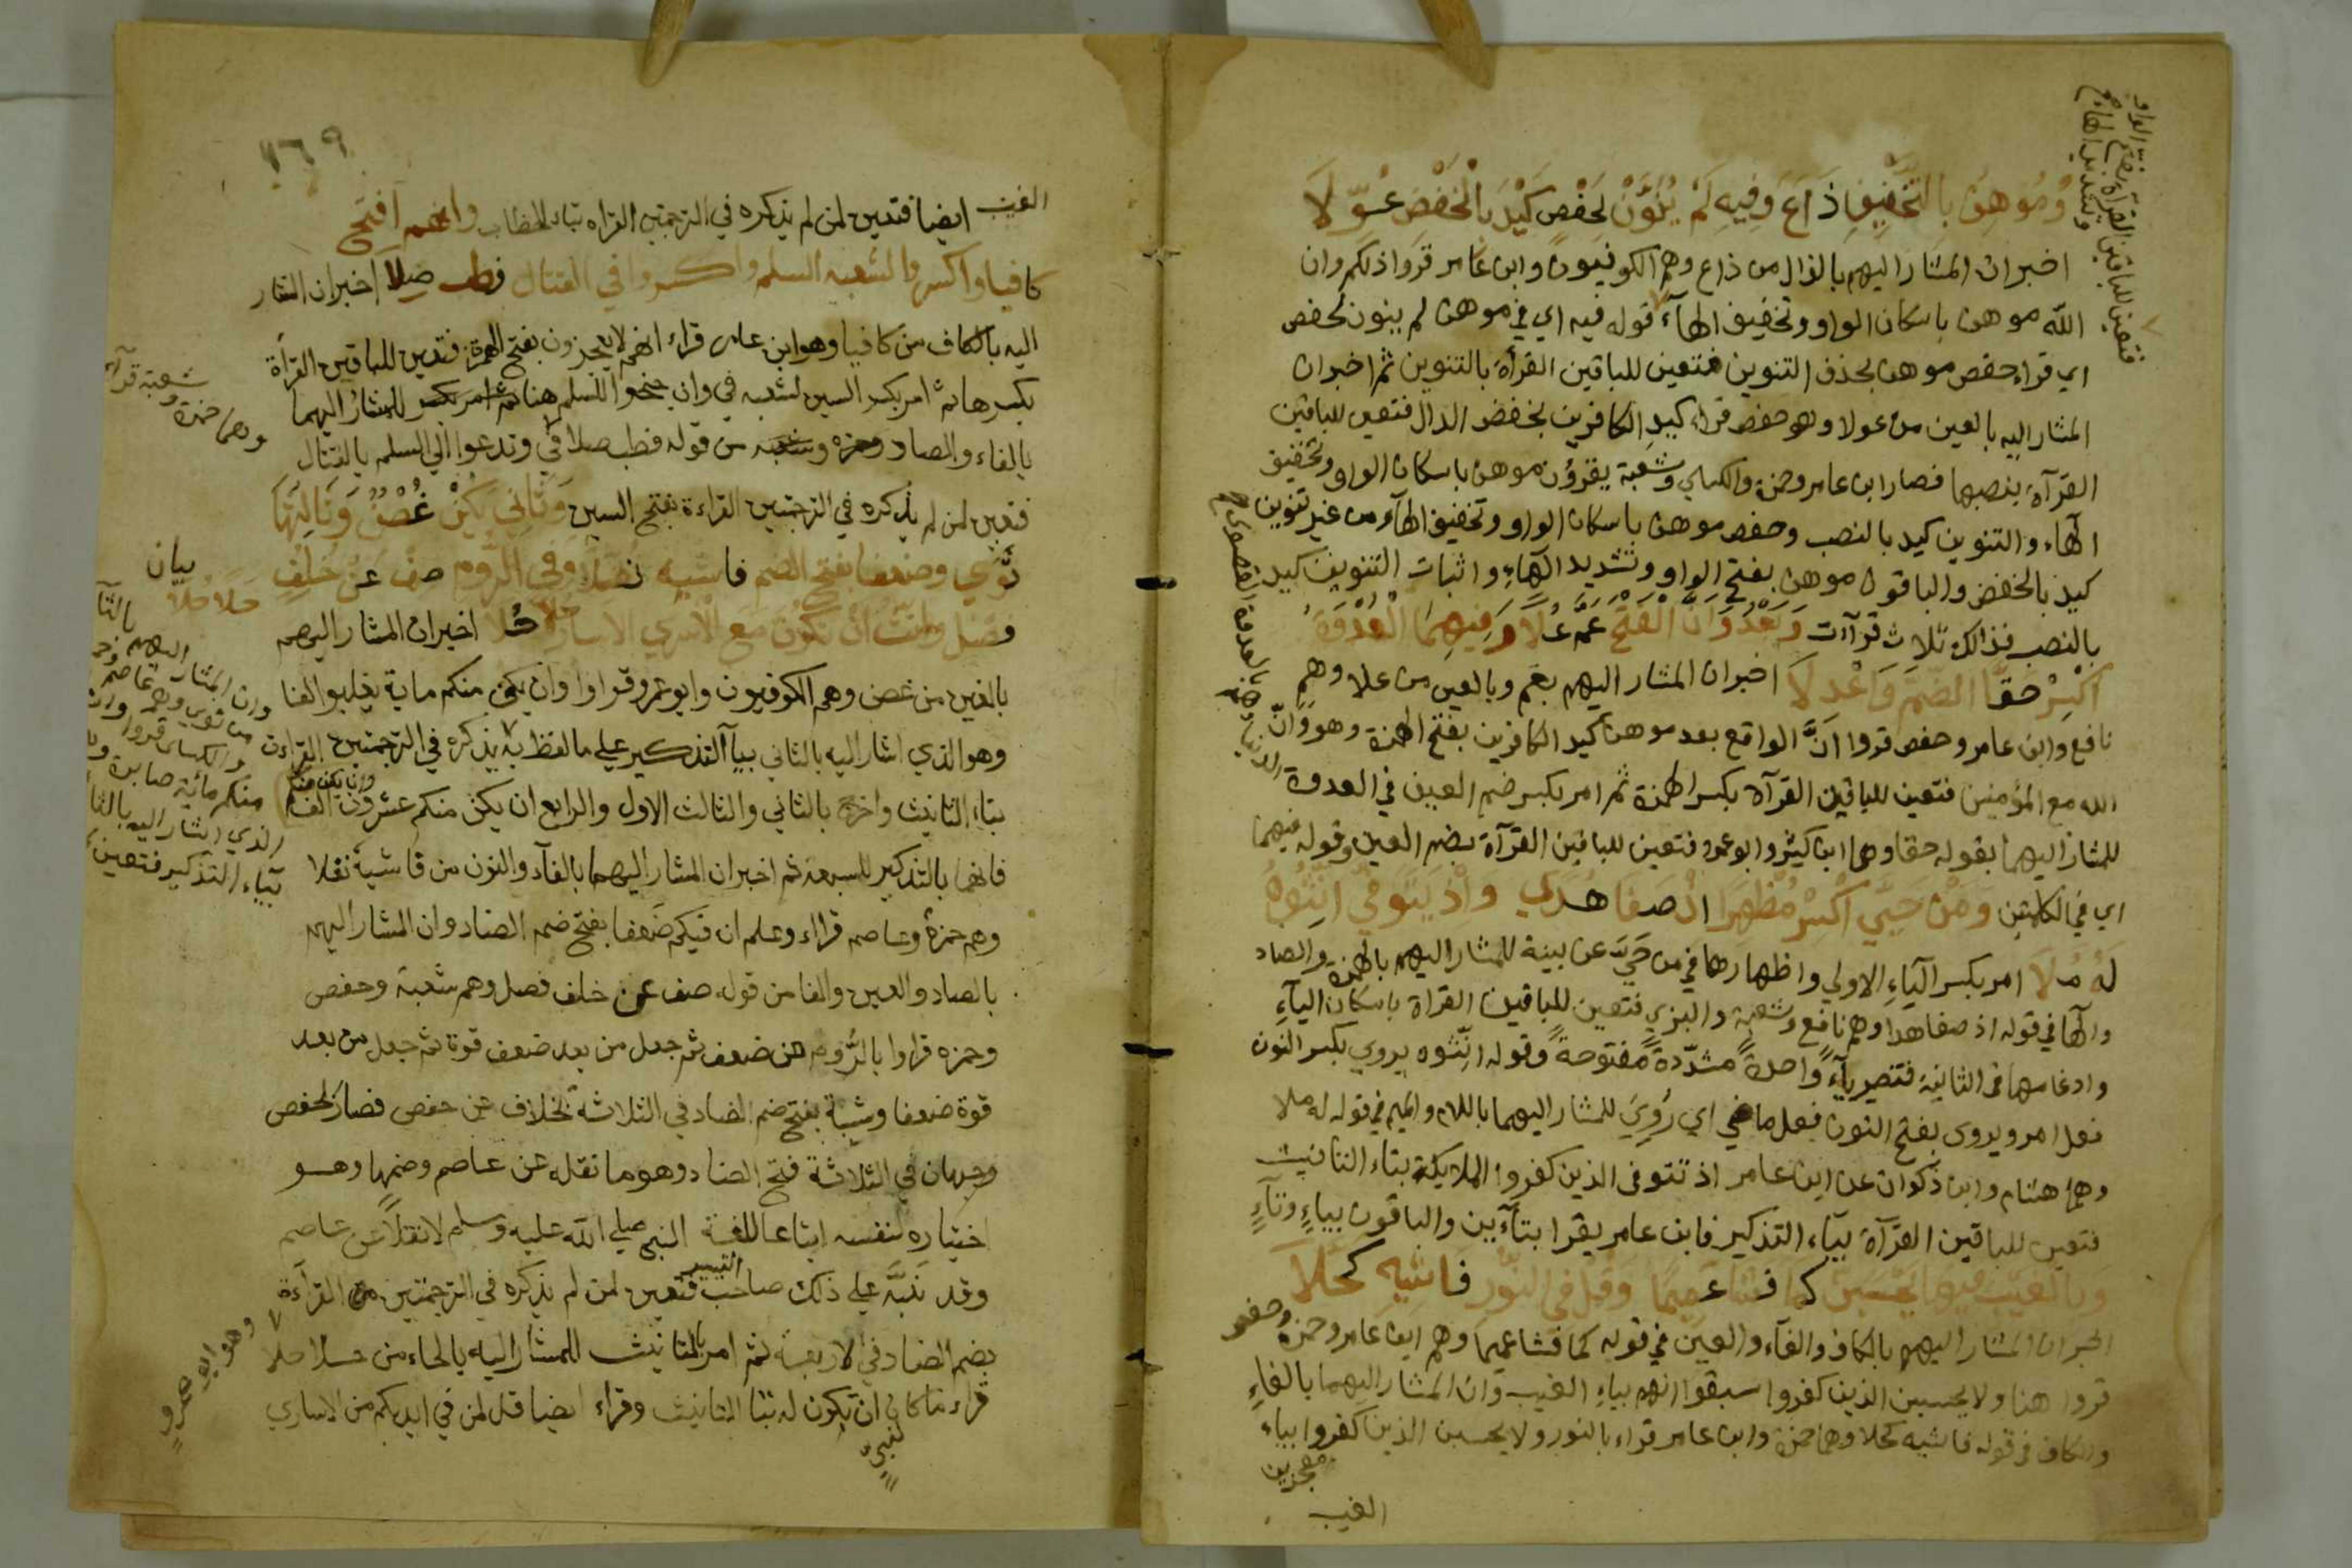 وَمُوهِنُ بالتَّخْفِيفِ ذَاعَ وَفِيهِ لَمْ يُنَوَّنْ لحَفْصٍ كَيْدَ بالْخَفْضِ عُوِّلَا
اخبر ان المشار اليهم بالذال من ذاع وهم الكوفيون وابن عامر قروا ذلكم وان
الله موهن باسكان الواو وتخفيف الهآء قوله فيه اي في موهن لم ينون لحفص
اي قراء حفص موهن بحذف التنوين فتعين للباقين القرأة بالتنوين ثم اخبر ان
المشار اليه بالعين من عولا وهو حفص قراء كيدِ الكافرين بخفض الدال فتعين للباقين
القرآة بنصبها فصار ابن عامر وحمزة والكساي وشعبة يقرؤن موهن باسكان الواو وتخفيف
الهاء والتنوين كيد بالنصب وحفص موهن باسكان الواو وتخفيف الهآء من غير تنوين
كيد بالخفض والباقون موهن بفتح الواو وتشديد الهاءِ واثبات التنوين كيد
بالنصب فذالك ثلاث قرآات وَبَعْدُ وَانَّ الْفَتْحُ عَمَّ عُلًا وَفِيهِمَا الْعُدْوَةِ
اكْسِرْ حَقًّا الضَّمَّ وَاعْدِلَا اخبر ان المشار اليهم بعم وبالعين من علا وهم
نافع وابن عامر وحفص قروا انَّ الواقع بعد موهن كيد الكافرين بفتح الهمزة وهو وَانَّ
الله مع المؤمنين فتعين للباقين القرآة بكسر الهمزة ثم امر بكسر ضم العين في العدوة
للمشار اليهما بقوله حقا وهما ابن كثير وابو عمرو فتعين للباقين القرآة بضم العين وقوله فيهما
اي في الكلمتين وَمَنْ حَيِيَ اكْسِرْ مُظْهِرًا اذْ صَفَا هُدَى وَاذْ يَتَوَفَّى انِّثُوهُ
لَهُ مُلَا امر بكسر اليَاءِ الاولي واظهارها في من حَيِيَ عن بينة للمشار اليهم بالهمزة والصاد
والها في قوله اذ صفا هدا وهم نافع وشعبة والبزي فتعين للباقين القراة باسكان اليآءِ
وادغامها في الثانية فتصير يآءً واحدةً مشدّدةً مفتوحةً وقوله انّثوه يروي بكسر النون
فعل امر ويروى بفتح النون فعل ماضي اي رُوِيَ للمشار اليهما باللام والميم في قوله له ملا
وهما هشام وابن ذكوان عن ابن عامر اذ تتوفى الذين كفروا الملايكة بتاء التانيث
فتعين للباقين القرآة بيآء التذكير فابن عامر يقرا بتآءين والباقون بياءٍ وتآءٍ
وَبالغَيْبِ فيها يَحْسَبَنَّ كما فَشَا عَمِيمًا وَقُلْ في النُّورِ فَاشِيهِ كَحَّلَا
اخبر ان المشار اليهم بالكاف والفآء والعين في قوله كما فشا عميما وهم ابن عامر وحمزة وحفص
قروا هنا ولا يحسبن الذين كفروا سبقوا انهم بياءِ الغيب وان المشار اليهما بالفاءِ
والكاف في قوله فاشيه كحلا وهما حمزة وابن عامر قراء بالنور ولا يحسبن الذين كفروا بياء
معجزين
الغيب
١٦٩
الغيب ايضا فتعين لمن لم يذكره في الترجمتين القراه بتاء الخطاب وانهم افتح
كافيا واكسروا لشعبه السلم واكسروا في القتال فطب صلا اخبر ان المشار
اليه بالكاف من كافيا وهو ابن عامر قراء انهم لا يعجزون بفتح الهمزة فتعين للباقين القرأة
بكسرها ثم امر بكسر السين لشعبه في وان جنحوا للسلم هنا ثم امر بكسر للمشار اليهما
بالفاء والصاد وحمزه وشعبه من قوله فطب صلا في وتدعوا الي السلم بالقتال
وهما حمزة وشعبة قرآ
فتعين لمن لم يذكره في الترجمتين القراءة بفتح السين وَثَانِي يَكُنْ غُصْنٌ وَثَالِثُهَا
ثَوَي وضعفا بفتح الضم فاشيه نفلا وفي الروم صف عن خلفٍ
فصل وانث ان تكون مع الاسري الاسارا حلا اخبر ان المشار اليهم
بالغين من غصن وهم الكوفيون وابو عمرو قراوا وان يكن منكم ماية يغلبوا الفا
وهو الذي اشار اليه بالثاني بيآ التذكير علي ما لفظ به يذكره في الترجمتين القراءة
بتاء التانيث واخرج بالثاني والثالث الاول والرابع ان يكن منكم عشرون وان يكن منكم الف
فانهما بالتذكير للسبعة ثم اخبر ان المشار اليهما بالفآء والنون من فاشية نفلا
وهم حمزة وعاصم قراء وعلم ان فيكم ضَعفا بفتح ضم الضاد وان المشار اليهم
بالصاد والعين والفا من قوله صف عن خلف فصل وهم شعبة وحفص
وحمزه قراوا بالرُّوم من ضعف ثم جعل من بعد ضعف قوة ثم جعل من بعد
قوة ضعفا وشيبة بفتح ضم الضاد في الثلاثة بخلاف عن حفص فصار لحفص
وجهان في الثلاثة فتح الضاد وهو ما نقله عن عاصم وضمها وهو
اختياره لنفسه اتباعا للغة النبي صلي الله عليه وسلم لا نقلاً عن عاصم
وقد نَبَّهَ علي ذلك صاحب التيسير فتعين لمن لم يذكره في الترجمتين القرآءة
بضم الضاد في الاربعة ثم امر بالتانيث للمشار اليه بالحاء من حلا حلا
وهو ابو عمرو
قراء ما كان لنبيٍّ ان تكون له بتا التانيث وقراء ايضا قل لمن في ايديكم من الاساري